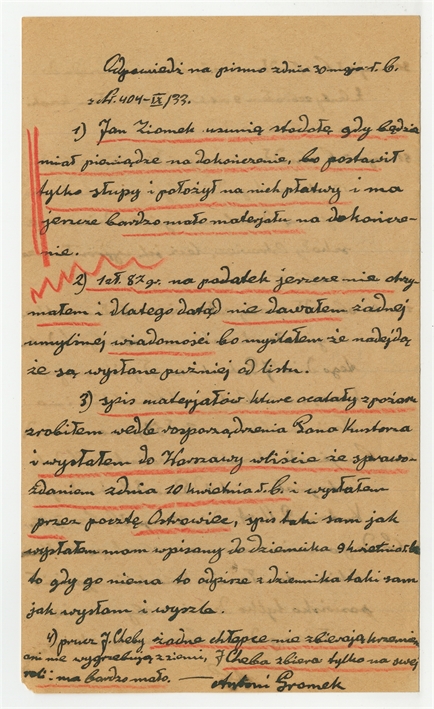 Odpowiedź na pismo z dnia 30 maja r. b.
z Nr. 404-IX/33.
1) Jan Zionek usunią stodołę gdy będzie
miał pieniądze na dokończenie, bo postawił
tylko słupy i położył na nich płatwy i ma
jeszcze bardzo mało materjału na dokończe-
nie.
2) 1 zł. 87 gr. na podatek jeszcze nie otrzy-
małem i dlatego dotąd nie dawałem żadnej
umyślnej wiadomości bo myślałem że nadejdą
że są wysłane puźniej od listu.
3) spis materjałów kture ocalały z pożaru
zrobiłem wedle rozporządzenia Pana Kustosza
i wysłałem do Warszawy w liście ze sprawo-
zdaniem z dnia 10 kwietnia r. b. i wysłałem
przez pocztę Ostrowiec, spis taki sam jak
wysłałem mam wpisany do dziennika 9 kwietnia r. b.
to gdy go niema to odpisze z dziennika taki sam
jak wysłam i wyszla.
4) prucz J. Cheby żadne chłopce nie zbierają krzemieni
ani nie wygrzebują z ziemi, J. Cheba zbiera tylko na swej
roli i ma bardzo mało. — Antoni Gromek